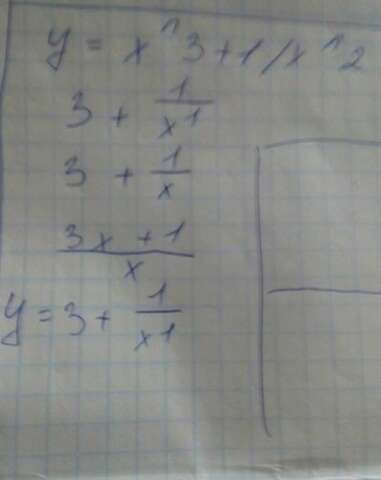 y = x^3+1/x^2
3 + 1/x1
3 + 1/x
3x + 1/x
y = 3 + 1/x1